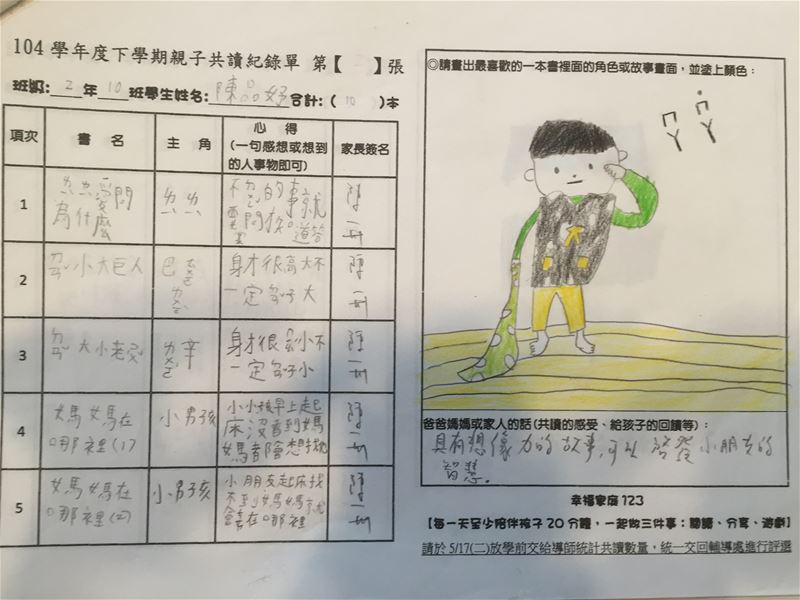 104 學年度下學期親子共讀紀錄單 第【 】張
班級: 2 年 10 班學生姓名: 陳品妤 合計: ( 10 )本
項次 書 名 主 角 心 得 (一句感想或想到的人事物即可) 家長簽名
1
為什麼
2 ㄉㄢˇ小大巨人
身才很高大不
一定 ㄉㄢˇ子大
3 ㄉㄢˇ大小老
身才很 小不
一定 ㄉㄢˇ子小
4 媽媽在
哪裡(1) 小男孩 小小孩早上起
床沒看到媽
媽都會想找
5 媽媽在
哪裡(2) 小男孩 小朋友起床找
不到媽媽就
會 在哪裡
◎請畫出最喜歡的一本書裡面的角色或故事畫面,並塗上顏色:
爸爸媽媽或家人的話(共讀的感受、給孩子的回饋等):
具有想像力的故事,可以啓發小朋友的
智慧.
幸福家庭 123
【每一天至少陪伴孩子 20 分鐘,一起做三件事:閱讀、分享、遊戲】
請於 5/17(二)放學前交給導師統計共讀數量,統一交回輔導處進行評選